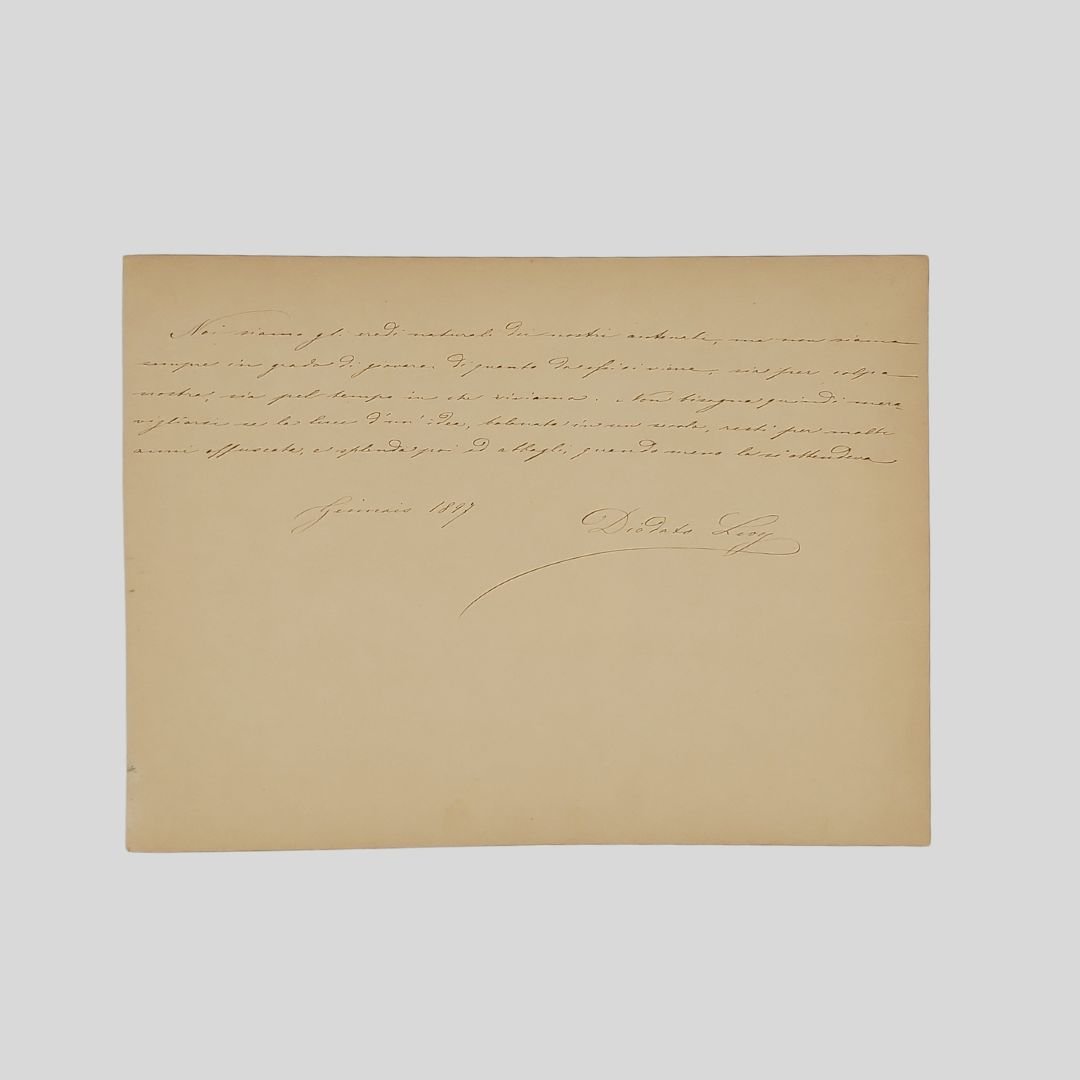 Noi siamo gli eredi naturali dei nostri antenati, ma non siamo
sempre in grado di godere di quanto da essi ci viene, sia per colpa
nostra, sia pel tempo in che viviamo. Non bisogna quindi mera-
vigliarsi se la luce d'un'idea, balenata in un secolo, resti per molti
anni offuscata, e splenda poi ed abbagli, quando meno la si attendeva
Gennaio 1897
Diodato Lioy